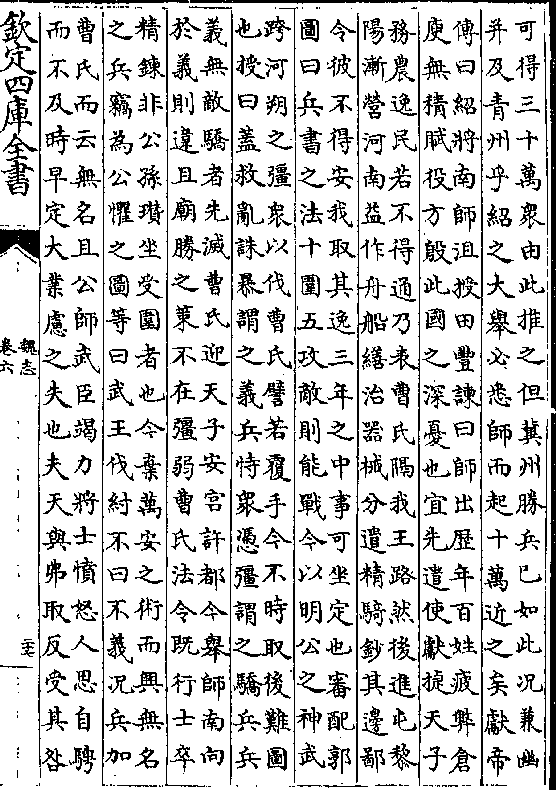 可得三十萬衆由此推之但冀州勝兵已如此况兼幽
并及青州乎紹之大舉必悉師而起十萬近之矣獻帝
傳曰紹將南師沮授田豐諫曰師出歷年百姓疲弊倉
庾無積賦役方殷此國之深憂也宜先遣使獻捷天子
務農逸民若不得通乃表曹氏隔我王路然後進屯黎
陽漸營河南益作舟船繕治器械分遣精騎鈔其邊鄙
令彼不得安我取其逸三年之中事可坐定也審配郭
圖曰兵書之法十圍五攻敵則能戰今以明公之神武
跨河朔之彊衆以伐曹氏譬若覆手今不時取後難圖
也授曰蓋救亂誅暴謂之義兵恃衆憑彊謂之驕兵兵
義無敵驕者先滅曹氏迎天子安宮許都今舉師南向
於義則違且廟勝之策不在彊弱曹氏法令既行士卒
精鍊非公孫瓚坐受圍者也今棄萬安之術而興無名
之兵竊為公懼之圖等曰武王伐紂不曰不義况兵加
曹氏而云無名且公師武臣竭力將士憤怒人思自騁
而不及時早定大業慮之失也夫天與弗取反受其咎
欽定四庫全書
魏志
卷六